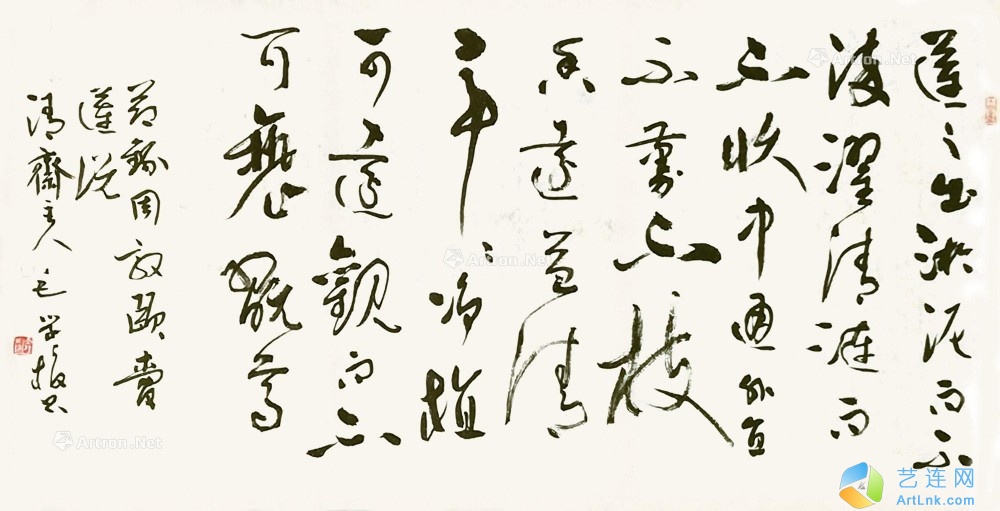 蓮之出淤泥而不
染濯清漣而
不妖中通外直
不蔓不枝
香遠益清
亭亭淨植
可遠觀而不
可褻翫焉
節錄周敦頤愛
蓮說
清齋主人
Artron.Net
Artron.Net
Artron.Net
Artron.Net
艺连网
ArtLnk.com